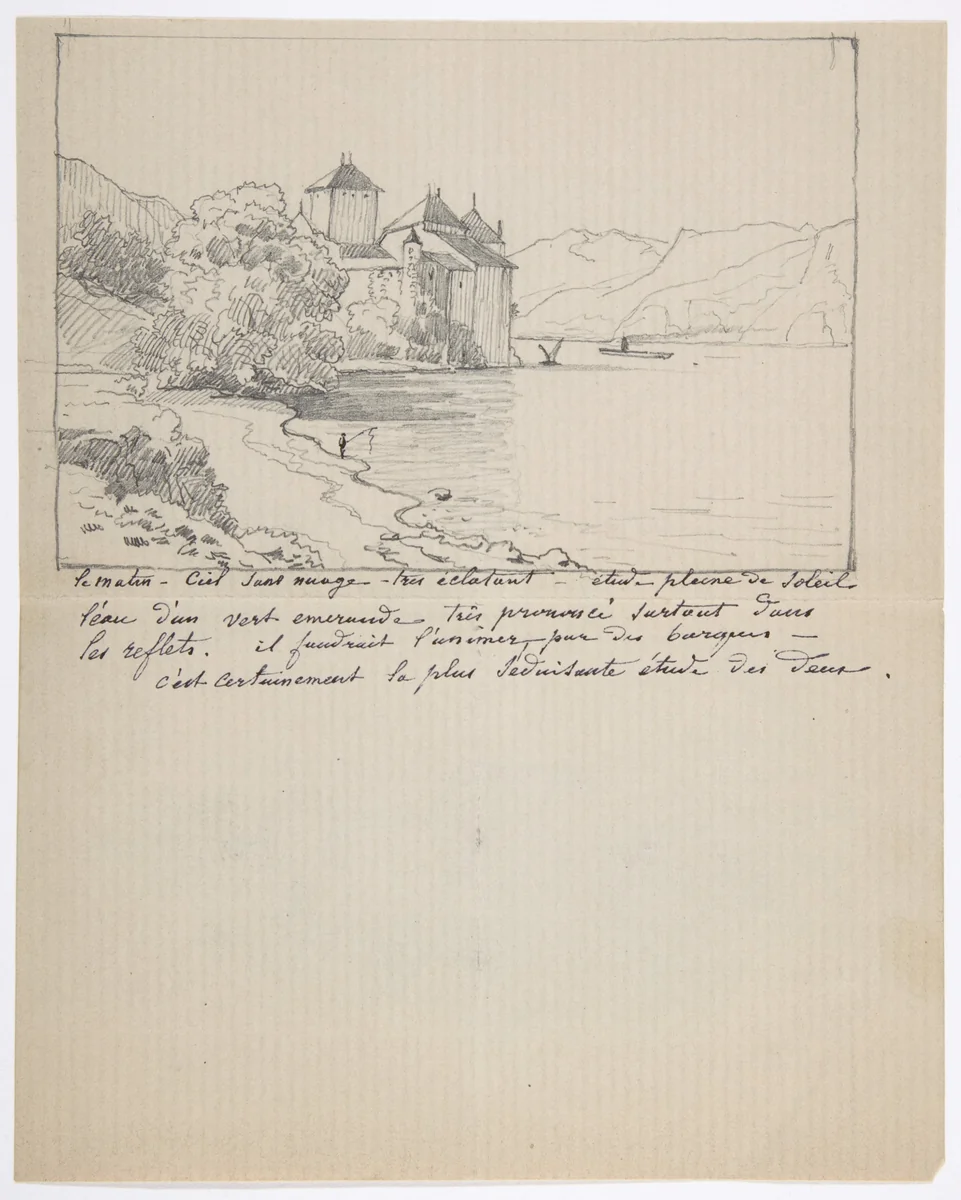 le matin - Ciel sans nuage - très éclatant - étude pleine de soleil
l'eau d'un vert emeraude très prononcé surtout dans
les reflets. il faudrait l'animer par des barques —
c'est certainement la plus séduisante étude des deux.